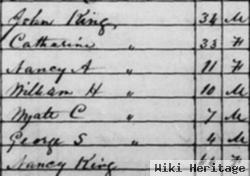 John King, 34 M
Catharine " 33 F
Nancy A " 11 F
William H " 10 M
Wyatt C " 7 M
George S " 4 M
Nancy King F
Wiki Heritage